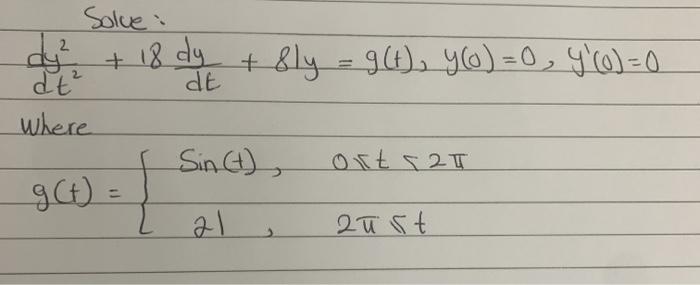 Solve:
dy²/dt² + 18 dy/dt + 81y = g(t), y(0)=0, y'(0)=0
Where
g(t) = { sin(t), 0≤t≤2π
21, 2π≤t